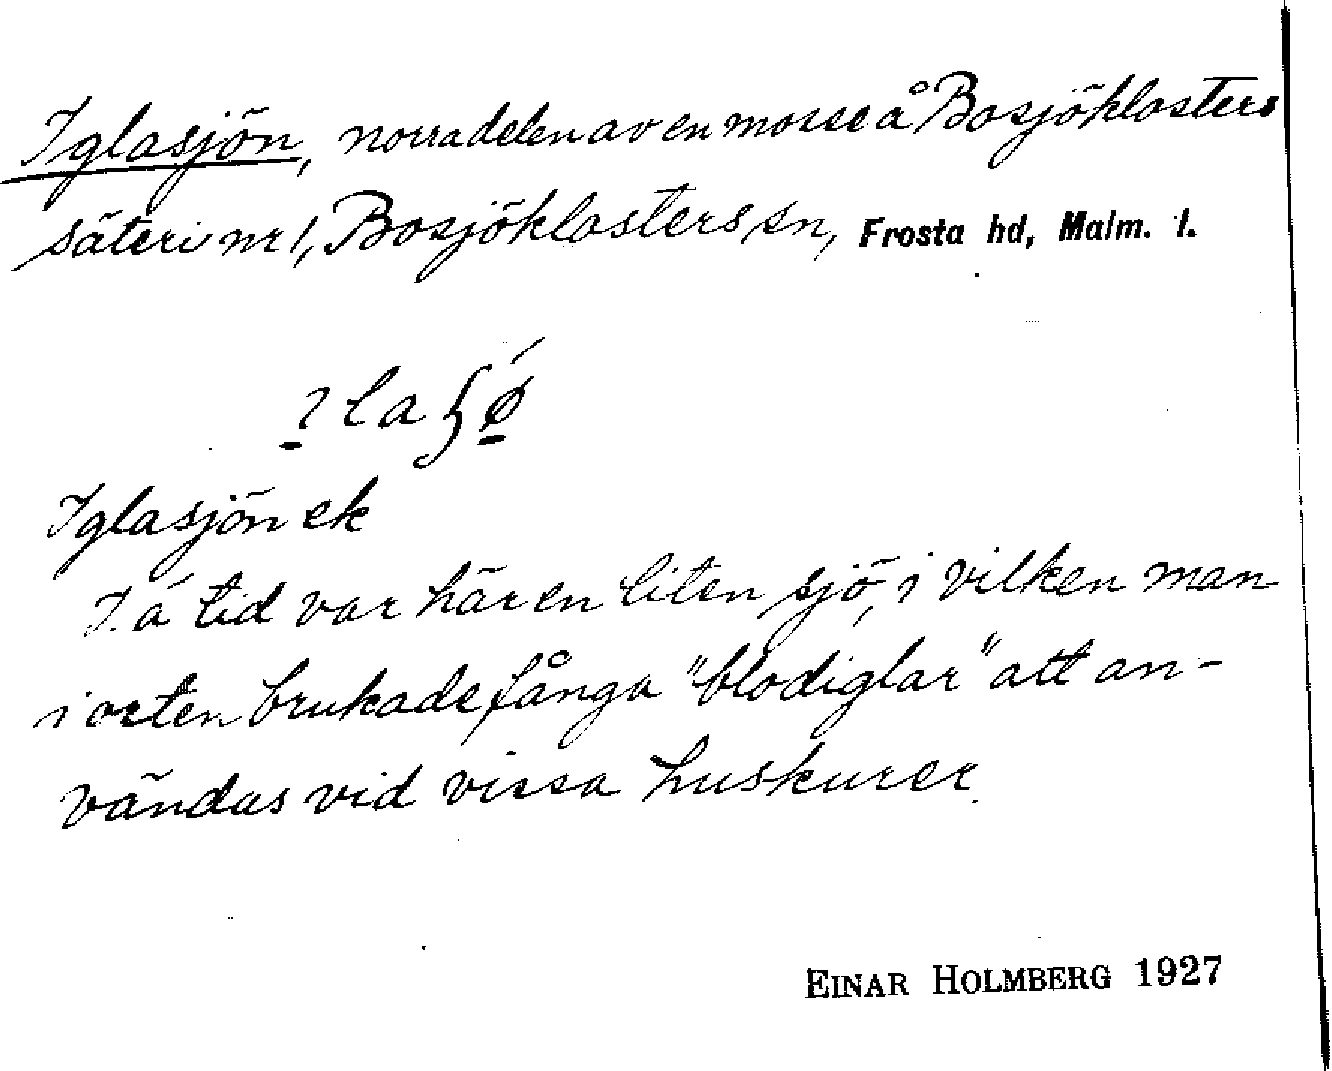 Iglasjön, norra delen av en mosse å Bosjöklosters
säteri nr 1, Bosjöklosters sn, Frosta hd, Malm. l.
Iglasjön ek
I ä tid var här en liten sjö, i vilken man
i orten brukade fånga "blodiglar" att an-
vändas vid vissa huskurer.
EINAR HOLMBERG 1927